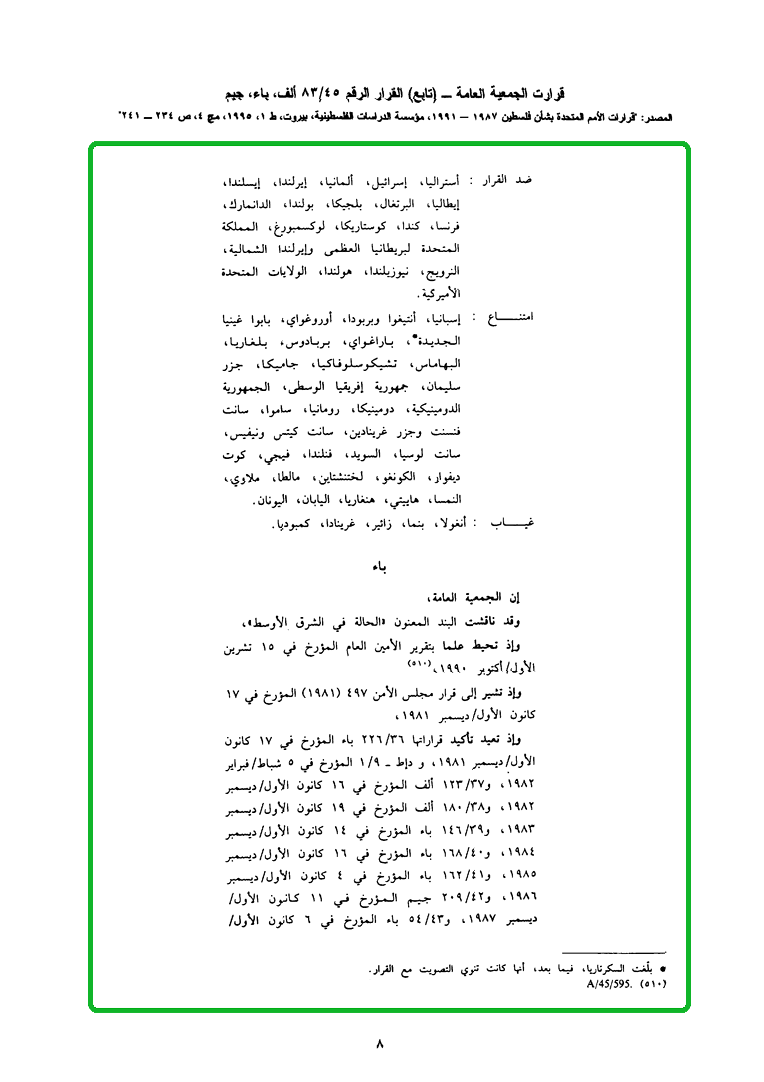 قرارت الجمعية العامة ــ (تابع) القرار الرقم ٨٣/٤٥ ألف، باء، جيم
المصدر: "قرارات الأمم المتحدة بشأن فلسطين ١٩٨٧ – ١٩٩١، مؤسسة الدراسات الفلسطينية، بيروت، ط ١، ١٩٩٥، مج ٤، ص ٢٣٤ – ٢٤١"
ضد القرار : أستراليا، إسرائيل، ألمانيا، إيرلندا، إيسلندا،
إيطاليا، البرتغال، بلجيكا، بولندا، الدانمارك،
فرنسا، كندا، كوستاريكا، لوكسمبورغ، المملكة
المتحدة لبريطانيا العظمى وإيرلندا الشمالية،
النرويج، نيوزيلندا، هولندا، الولايات المتحدة
الأميركية.
امتنـــاع : إسبانيا، أنتيغوا وبربودا، أوروغواي، بابوا غينيا
الجديدة*، باراغواي، بربادوس، بلغاريا،
البهاماس، تشيكوسلوفاكيا، جاميكا، جزر
سليمان، جمهورية إفريقيا الوسطى، الجمهورية
الدومينيكية، دومينيكا، رومانيا، ساموا، سانت
فنسنت وجزر غرينادين، سانت كيتس ونيفيس،
سانت لوسيا، السويد، فنلندا، فيجي، كوت
ديفوار، الكونغو، لختنشتاين، مالطا، ملاوي،
النمسا، هاييتي، هنغاريا، اليابان، اليونان.
غيـــاب : أنغولا، بنما، زائير، غرينادا، كمبوديا.
باء
إن الجمعية العامة،
وقد ناقشت البند المعنون «الحالة في الشرق الأوسط»،
وإذ تحيط علما بتقرير الأمين العام المؤرخ في ١٥ تشرين
الأول/أكتوبر ١٩٩٠،(٥١٠)
وإذ تشير إلى قرار مجلس الأمن ٤٩٧ (١٩٨١) المؤرخ في ١٧
كانون الأول/ديسمبر ١٩٨١،
وإذ تعيد تأكيد قراراتها ٢٢٦/٣٦ باء المؤرخ في ١٧ كانون
الأول/ديسمبر ١٩٨١، و دإط ـ ١/٩ المؤرخ في ٥ شباط/فبراير
١٩٨٢، و١٢٣/٣٧ ألف المؤرخ في ١٦ كانون الأول/ديسمبر
١٩٨٢، و١٨٠/٣٨ ألف المؤرخ في ١٩ كانون الأول/ديسمبر
١٩٨٣، و١٤٦/٣٩ باء المؤرخ في ١٤ كانون الأول/ديسمبر
١٩٨٤، و١٦٨/٤٠ باء المؤرخ في ١٦ كانون الأول/ديسمبر
١٩٨٥، و١٦٢/٤١ باء المؤرخ في ٤ كانون الأول/ديسمبر
١٩٨٦، و٢٠٩/٤٢ جيم المؤرخ في ١١ كانون الأول/
ديسمبر ١٩٨٧، و٥٤/٤٣ باء المؤرخ في ٦ كانون الأول/
* بلّغت السكرتاريا، فيما بعد، أنها كانت تنوي التصويت مع القرار.
(٥١٠) A/45/595.
٨